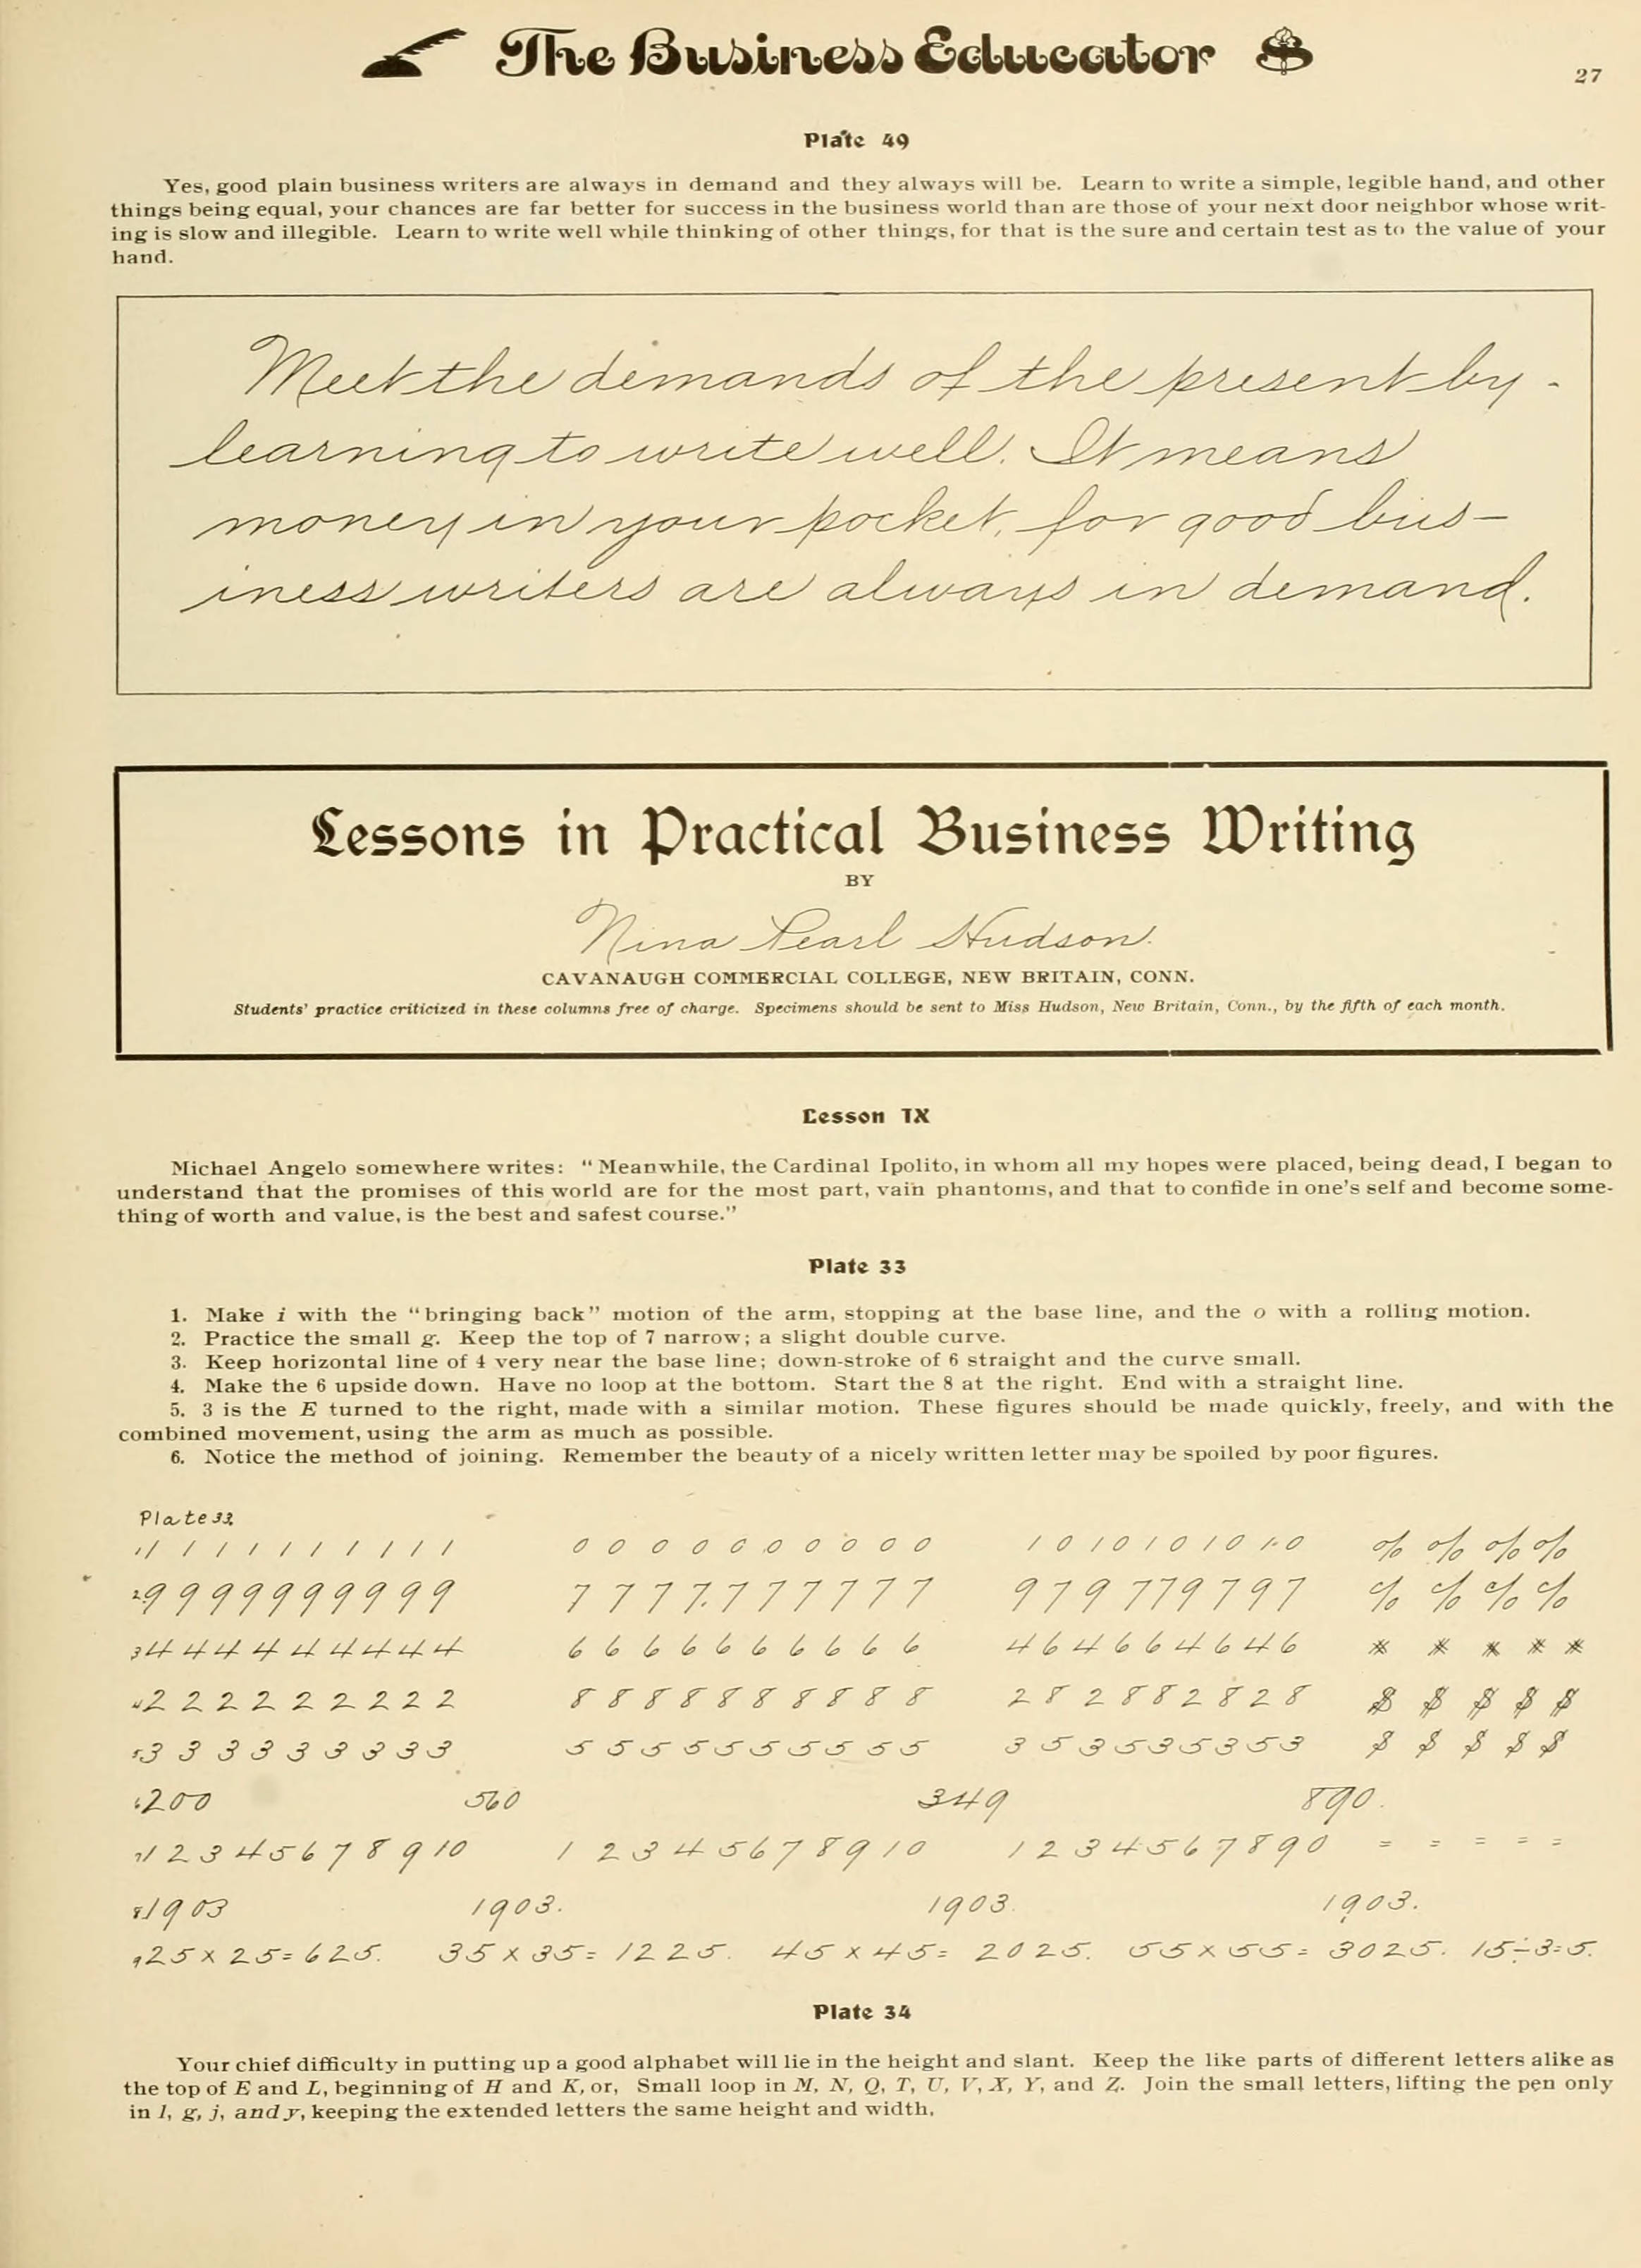 The Business Educator
27
Plate 49
Yes, good plain business writers are always in demand and they always will be. Learn to write a simple, legible hand, and other
things being equal, your chances are far better for success in the business world than are those of your next door neighbor whose writ-
ing is slow and illegible. Learn to write well while thinking of other things, for that is the sure and certain test as to the value of your
hand.
Meet the demands of the present by
learning to write well. It means
money in your pocket, for good bus-
iness writers are always in demand.
Lessons in Practical Business Writing
BY
Nina Pearl Hudson.
CAVANAUGH COMMERCIAL COLLEGE, NEW BRITAIN, CONN.
Students' practice criticized in these columns free of charge. Specimens should be sent to Miss Hudson, New Britain, Conn., by the fifth of each month.
Lesson IX
Michael Angelo somewhere writes: "Meanwhile, the Cardinal Ipolito, in whom all my hopes were placed, being dead, I began to
understand that the promises of this world are for the most part, vain phantoms, and that to confide in one's self and become some-
thing of worth and value, is the best and safest course."
Plate 33
1. Make i with the "bringing back" motion of the arm, stopping at the base line, and the o with a rolling motion.
2. Practice the small g. Keep the top of 7 narrow; a slight double curve.
3. Keep horizontal line of 4 very near the base line; down-stroke of 6 straight and the curve small.
4. Make the 6 upside down. Have no loop at the bottom. Start the 8 at the right. End with a straight line.
5. 3 is the E turned to the right, made with a similar motion. These figures should be made quickly, freely, and with the
combined movement, using the arm as much as possible.
6. Notice the method of joining. Remember the beauty of a nicely written letter may be spoiled by poor figures.
Plate 33.
1 1 1 1 1 1 1 1 1 1 1 0 0 0 0 0 0 0 0 0 0 1 0 1 0 1 0 1 0 1 0 % % % %
2 9 9 9 9 9 9 9 9 9 9 7 7 7 7 7 7 7 7 7 7 9 7 9 7 7 9 7 9 7 % % % %
3 4 4 4 4 4 4 4 4 4 6 6 6 6 6 6 6 6 6 6 4 6 4 6 6 4 6 4 6 # # # # #
4 2 2 2 2 2 2 2 2 2 8 8 8 8 8 8 8 8 8 8 2 8 2 8 8 2 8 2 8 $ $ $ $ $
5 3 3 3 3 3 3 3 3 3 5 5 5 5 5 5 5 5 5 5 3 5 3 5 3 5 3 5 3 $ $ $ $ $
6 200 560 349 890.
7 1 2 3 4 5 6 7 8 9 10 1 2 3 4 5 6 7 8 9 10 1 2 3 4 5 6 7 8 9 0 = = = = =
8 1903 1903. 1903. 1903.
9 25 x 25 = 625. 35 x 35 = 1225. 45 x 45 = 2025. 55 x 55 = 3025. 15÷3=5.
Plate 34
Your chief difficulty in putting up a good alphabet will lie in the height and slant. Keep the like parts of different letters alike as
the top of E and L, beginning of H and K, or, Small loop in M, N, Q, T, U, V, X, Y, and Z. Join the small letters, lifting the pen only
in l, g, j, and y, keeping the extended letters the same height and width.